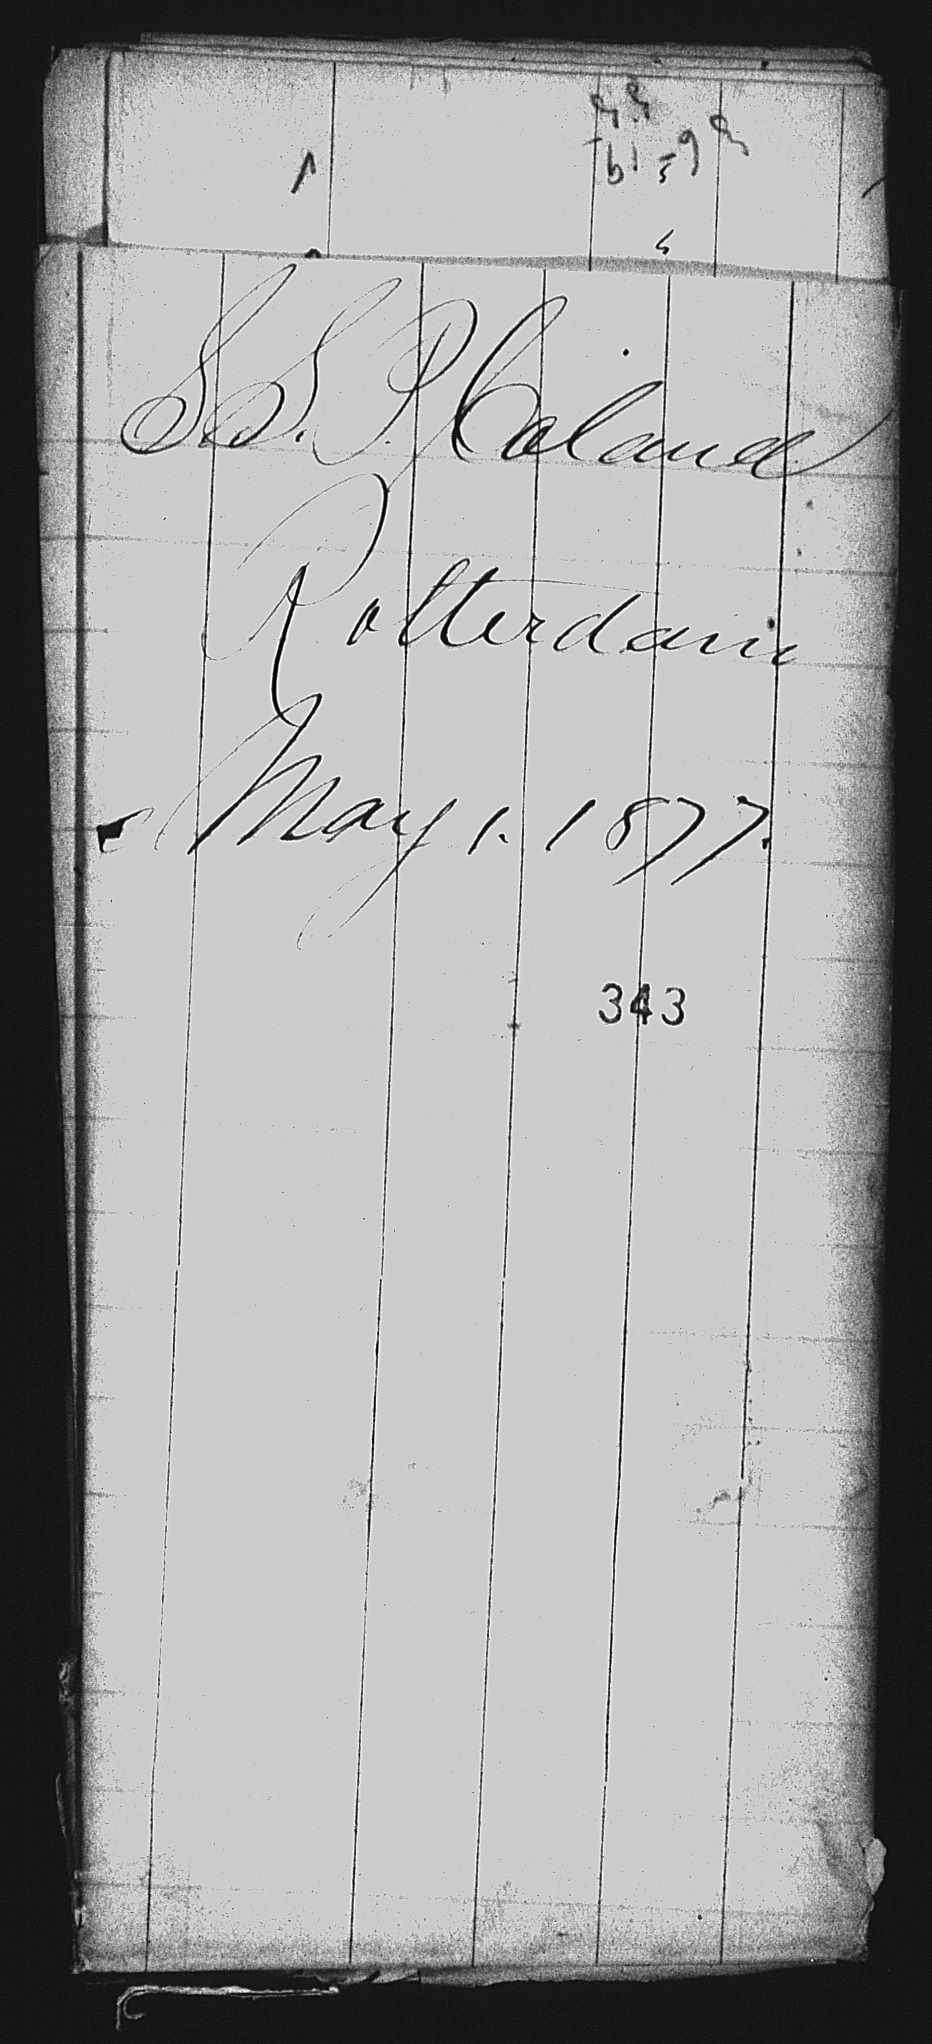 S.S. P. Caland
Rotterdam
May 1. 1877.
343